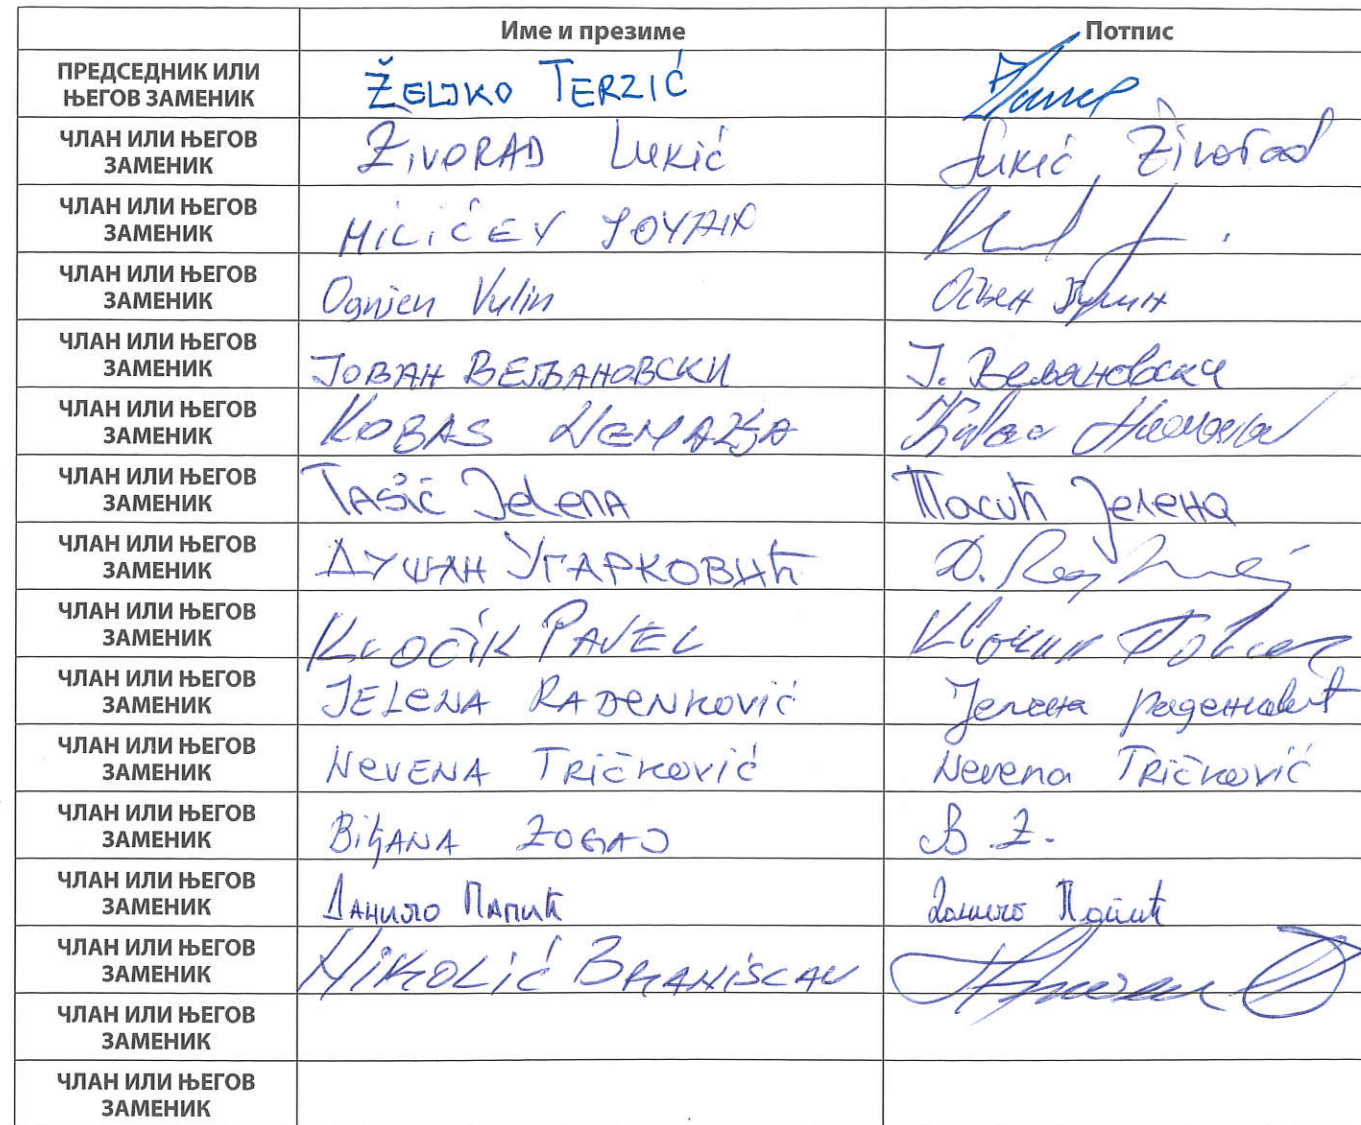 Име и презиме Потпис
ПРЕДСЕДНИК ИЛИ
ЊЕГОВ ЗАМЕНИК
ŽELJKO TERZIĆ
ЧЛАН ИЛИ ЊЕГОВ
ЗАМЕНИК
ŽIVORAD LUKIĆ Lukić Živorad
ЧЛАН ИЛИ ЊЕГОВ
ЗАМЕНИК
MILIĆEV JOVAN
ЧЛАН ИЛИ ЊЕГОВ
ЗАМЕНИК
Ognjen Vulin Огњен Вулин
ЧЛАН ИЛИ ЊЕГОВ
ЗАМЕНИК
ЈОВАН ВЕЉАНОВСКИ Ј. Вељановски
ЧЛАН ИЛИ ЊЕГОВ
ЗАМЕНИК
KOBAS NEMANJA
ЧЛАН ИЛИ ЊЕГОВ
ЗАМЕНИК
TASIĆ JeLeNA Тасић Јелена
ЧЛАН ИЛИ ЊЕГОВ
ЗАМЕНИК
ДУШАН УГАРКОВИЋ
ЧЛАН ИЛИ ЊЕГОВ
ЗАМЕНИК
KLOČIK PAVEL
ЧЛАН ИЛИ ЊЕГОВ
ЗАМЕНИК
JELENA RADENKOVIĆ Јелена Раденковић
ЧЛАН ИЛИ ЊЕГОВ
ЗАМЕНИК
NEVENA TRIČKOVIĆ Nevena TRIČKOVIĆ
ЧЛАН ИЛИ ЊЕГОВ
ЗАМЕНИК
BIљANA ZOGAJ B. Z.
ЧЛАН ИЛИ ЊЕГОВ
ЗАМЕНИК
ДАНИЛО ПАПИЋ Данило Папић
ЧЛАН ИЛИ ЊЕГОВ
ЗАМЕНИК
NIKOLIĆ BRANISLAV
ЧЛАН ИЛИ ЊЕГОВ
ЗАМЕНИК
ЧЛАН ИЛИ ЊЕГОВ
ЗАМЕНИК